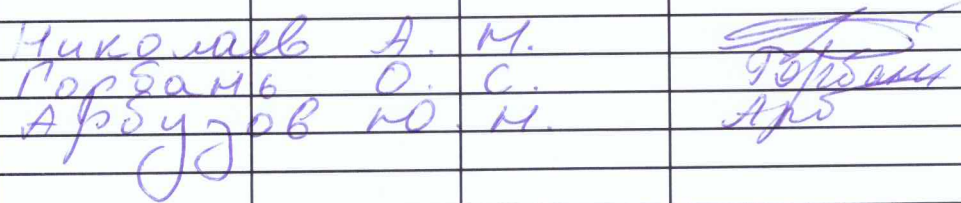 Николаев А. Н.
Горбань О. С. Горбань
Арбузов Ю. Н. Арб